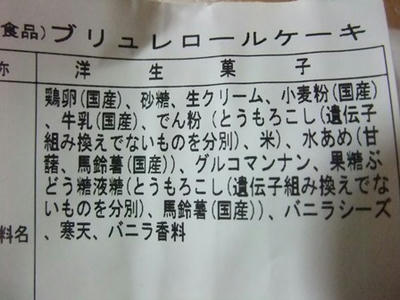 食品）ブリュレロールケーキ
称 洋生菓子
鶏卵(国産)、砂糖、生クリーム、小麦粉(国産)
、牛乳(国産)、でん粉（とうもろこし(遺伝子
組み換えでないものを分別)、米)、水あめ(甘
藷、馬鈴薯(国産))、グルコマンナン、果糖ぶ
どう糖液糖(とうもろこし(遺伝子組み換えでな
いものを分別)、馬鈴薯(国産))、バニラシーズ
料名 、寒天、バニラ香料